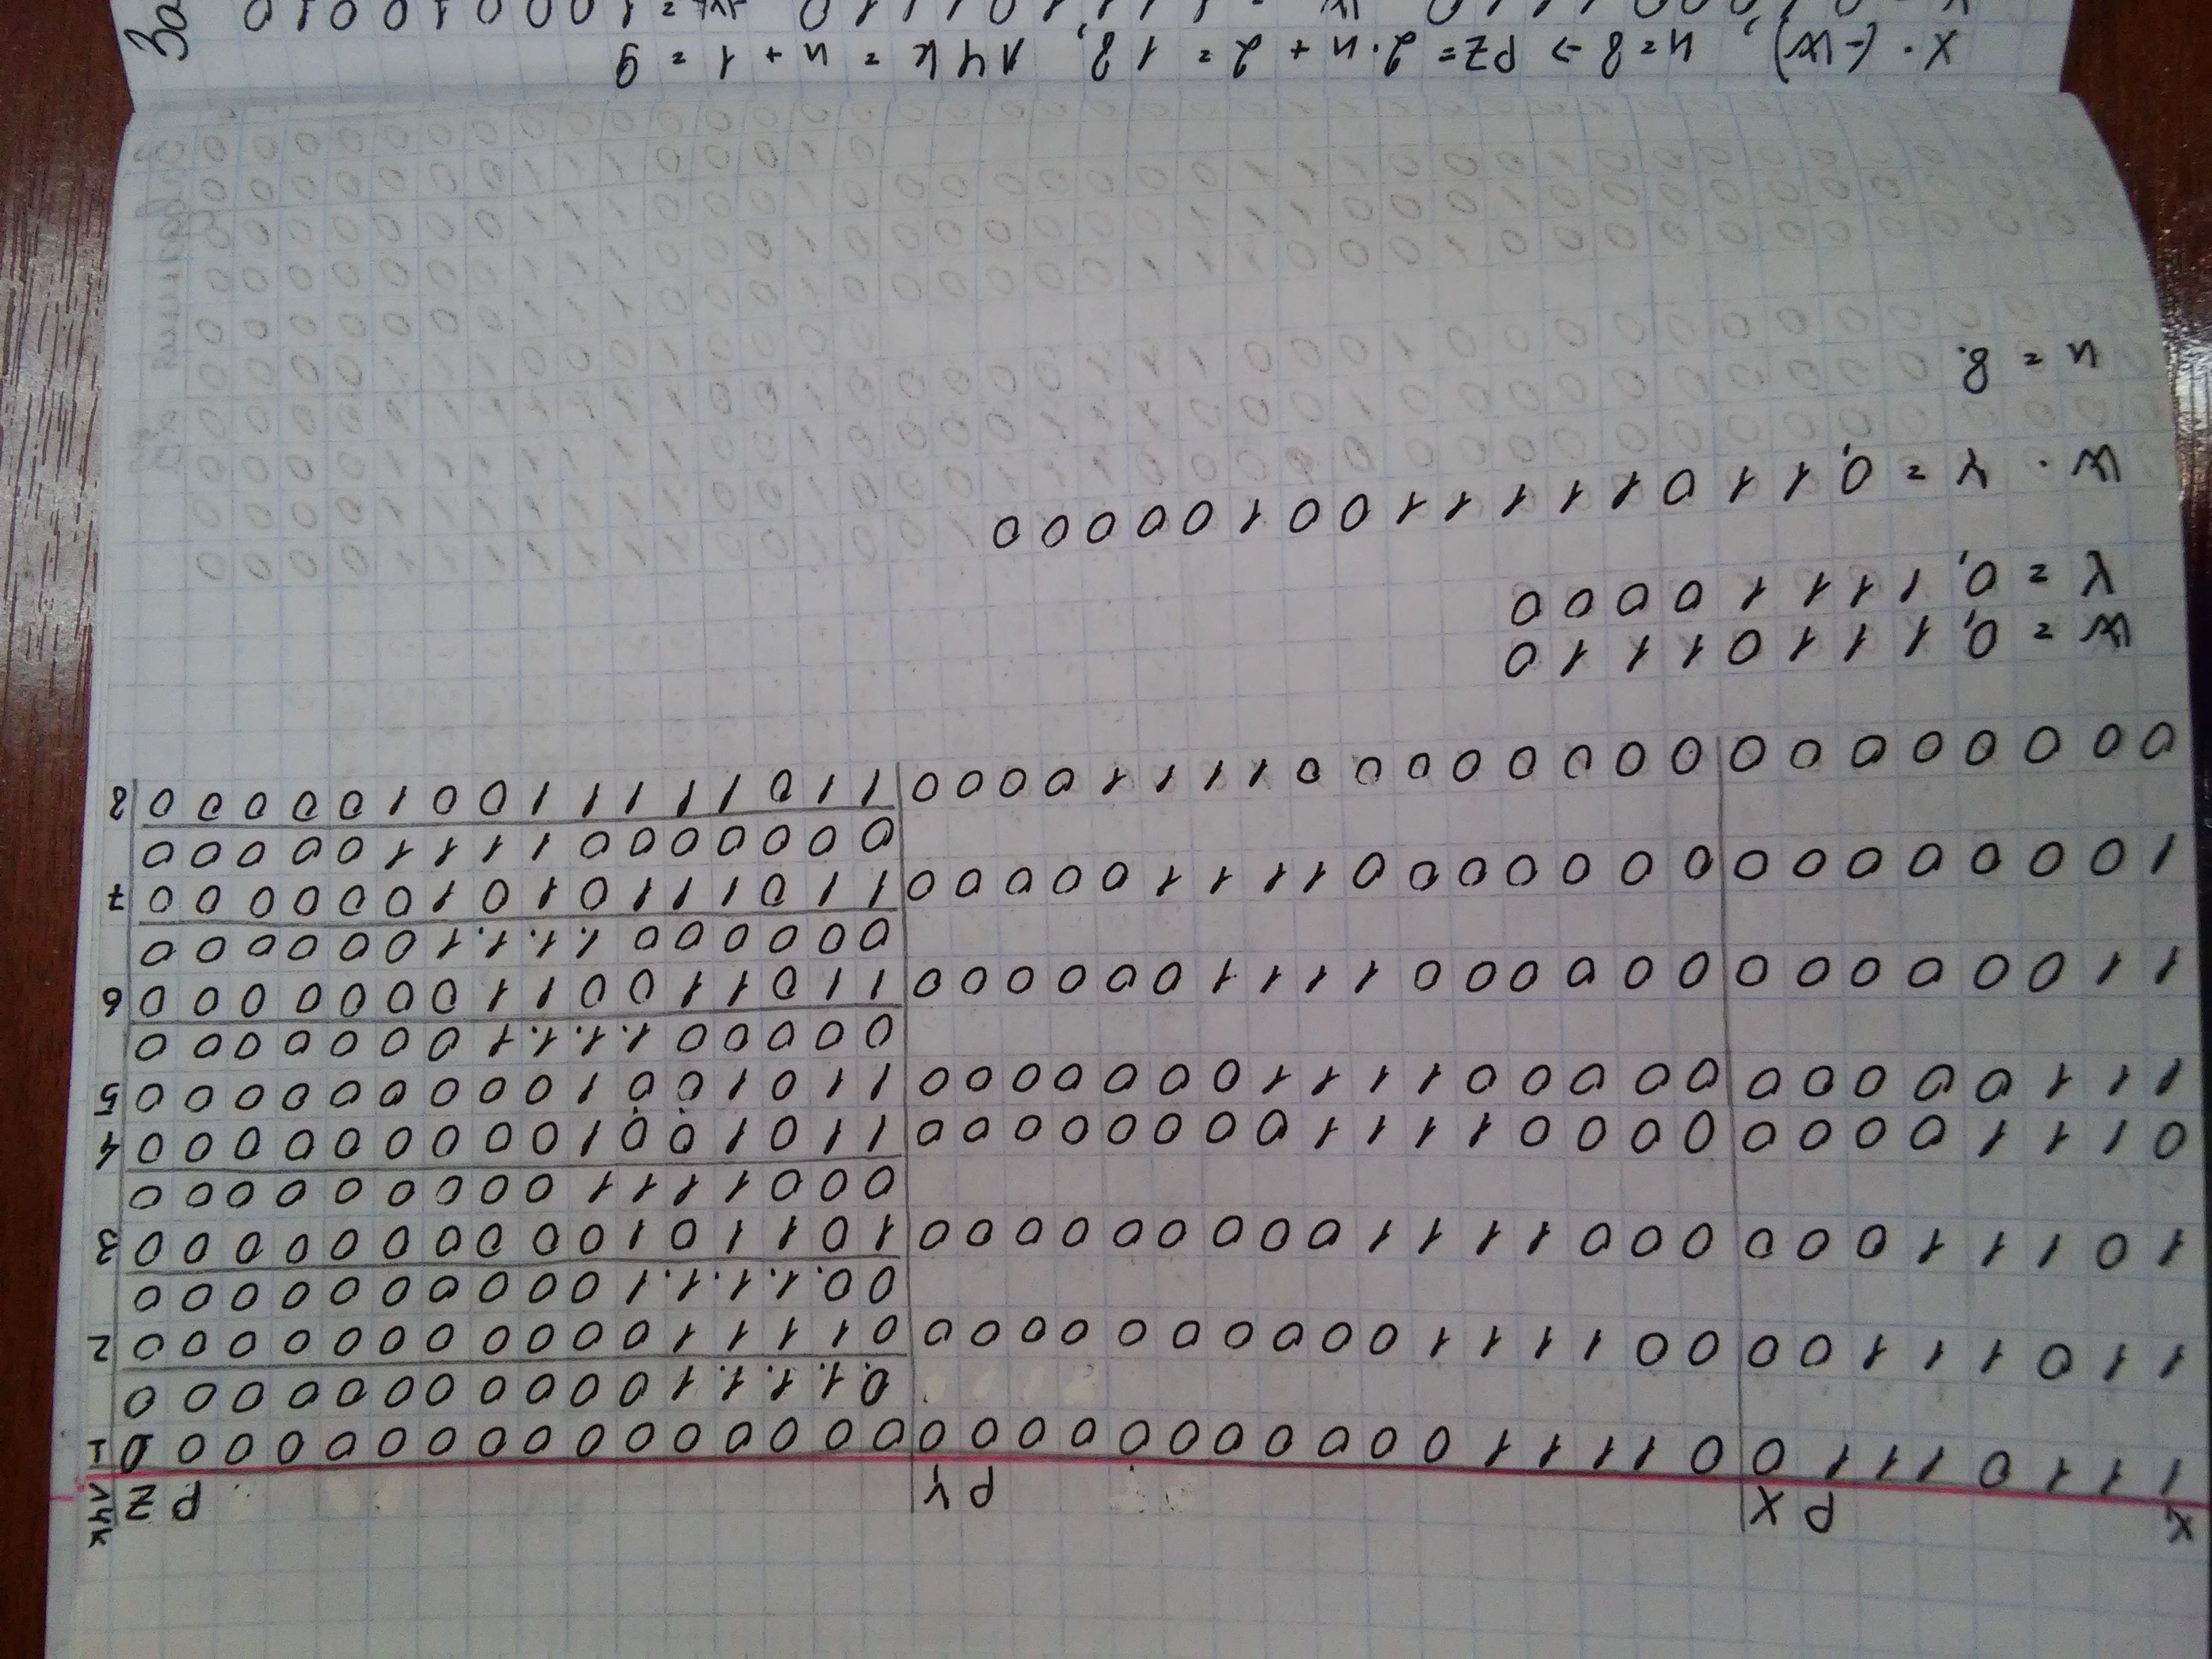 X, PX PY PZ ЛЧК
1 1 1 0 1 1 1 0 0 1 1 1 1 0 0 0 0 0 0 0 0 0 0 0 0 0 0 0 0 0 0 0 0 0 0 0 0 0 0 0 1
0. 1. 1. 1. 1 0 0 0 0 0 0 0 0 0 0 0
1 1 0 1 1 1 0 0 0 0 1 1 1 1 0 0 0 0 0 0 0 0 0 0 0 1 1 1 1 0 0 0 0 0 0 0 0 0 0 0 2
0 0. 1. 1. 1. 1 0 0 0 0 0 0 0 0 0 0
1 0 1 1 1 0 0 0 0 0 0 1 1 1 1 0 0 0 0 0 0 0 0 0 1 0 1 1 0 1 0 0 0 0 0 0 0 0 0 0 3
0 0 0 1 1 1 1 0 0 0 0 0 0 0 0 0
0 1 1 1 0 0 0 0 0 0 0 0 1 1 1 1 0 0 0 0 0 0 0 0 1 1 0 1 0 0 1 0 0 0 0 0 0 0 0 0 4
1 1 1 0 0 0 0 0 0 0 0 0 0 1 1 1 1 0 0 0 0 0 0 0 1 1 0 1 0 0 1 0 0 0 0 0 0 0 0 0 5
0 0 0 0 0 1. 1. 1. 1 0 0 0 0 0 0 0
1 1 0 0 0 0 0 0 0 0 0 0 0 0 1 1 1 1 0 0 0 0 0 0 1 1 0 1 1 0 0 1 1 0 0 0 0 0 0 0 6
0 0 0 0 0 0 1. 1. 1. 1 0 0 0 0 0 0
1 0 0 0 0 0 0 0 0 0 0 0 0 0 0 1 1 1 1 0 0 0 0 0 1 1 0 1 1 1 0 1 0 1 0 0 0 0 0 0 7
0 0 0 0 0 0 0 1 1 1 1 0 0 0 0 0
0 0 0 0 0 0 0 0 0 0 0 0 0 0 0 0 1 1 1 1 0 0 0 0 1 1 0 1 1 1 1 1 0 0 1 0 0 0 0 0 8
W = 0, 1 1 1 0 1 1 1 0
Y = 0, 1 1 1 1 0 0 0 0
W · Y = 0, 1 1 0 1 1 1 1 1 0 0 1 0 0 0 0 0
n = 8.
X · (-W), n = 8 → PZ = 2·n + 2 = 18, ЛЧК = n + 1 = 9